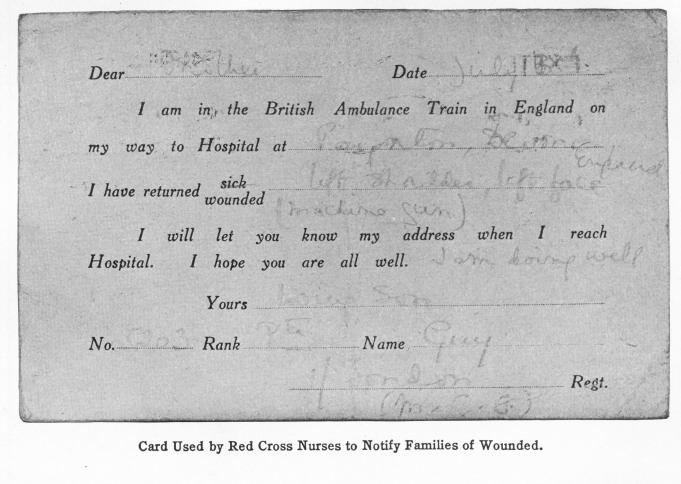 Dear Mother Date July
I am in the British Ambulance Train in England on
my way to Hospital at Paignton, Devon
England
I have returned sick wounded left shoulder, left face
(machine gun)
I will let you know my address when I reach
Hospital. I hope you are all well. I am doing well
Yours loving Son
No. Rank Pte Name Guy
London
Regt.
Card Used by Red Cross Nurses to Notify Families of Wounded.